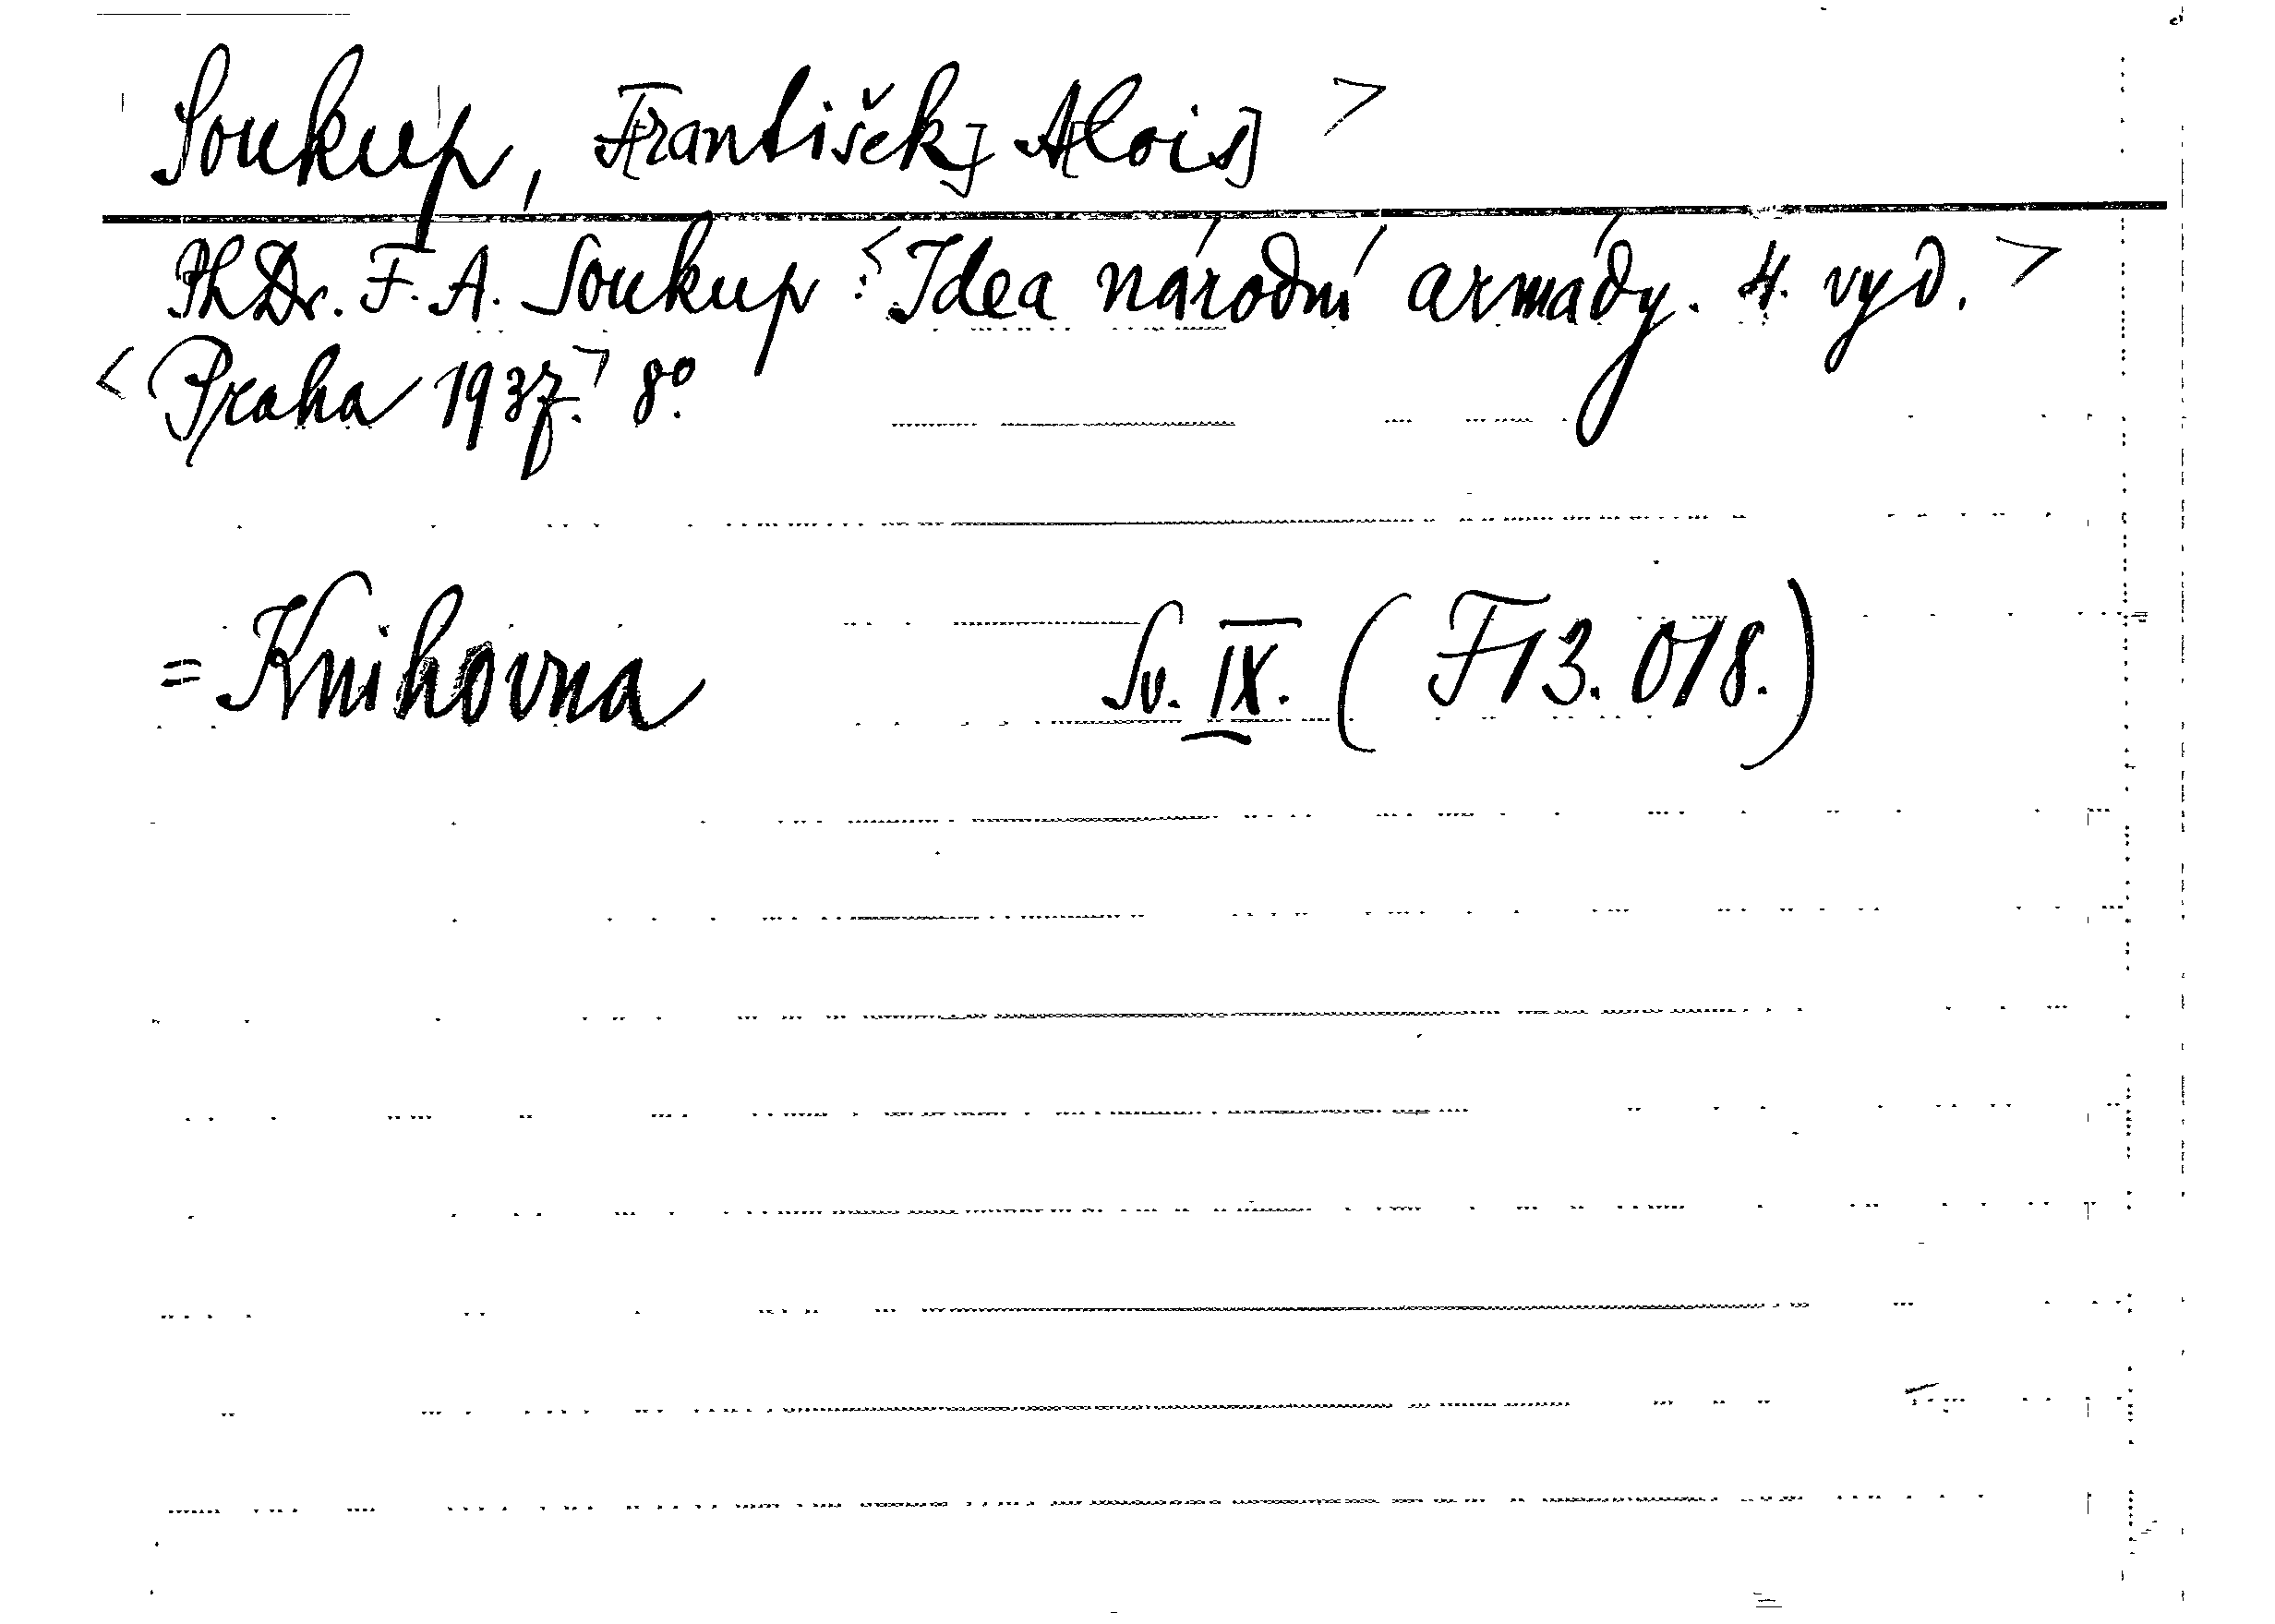 Soukup, F[rantišek] A[lois] >
PhDr. F. A. Soukup: < Idea národní armády. 4. vyd. >
< Praha 1937. > 8°.
= Knihovna Sv. IX. ( F 13.018. )